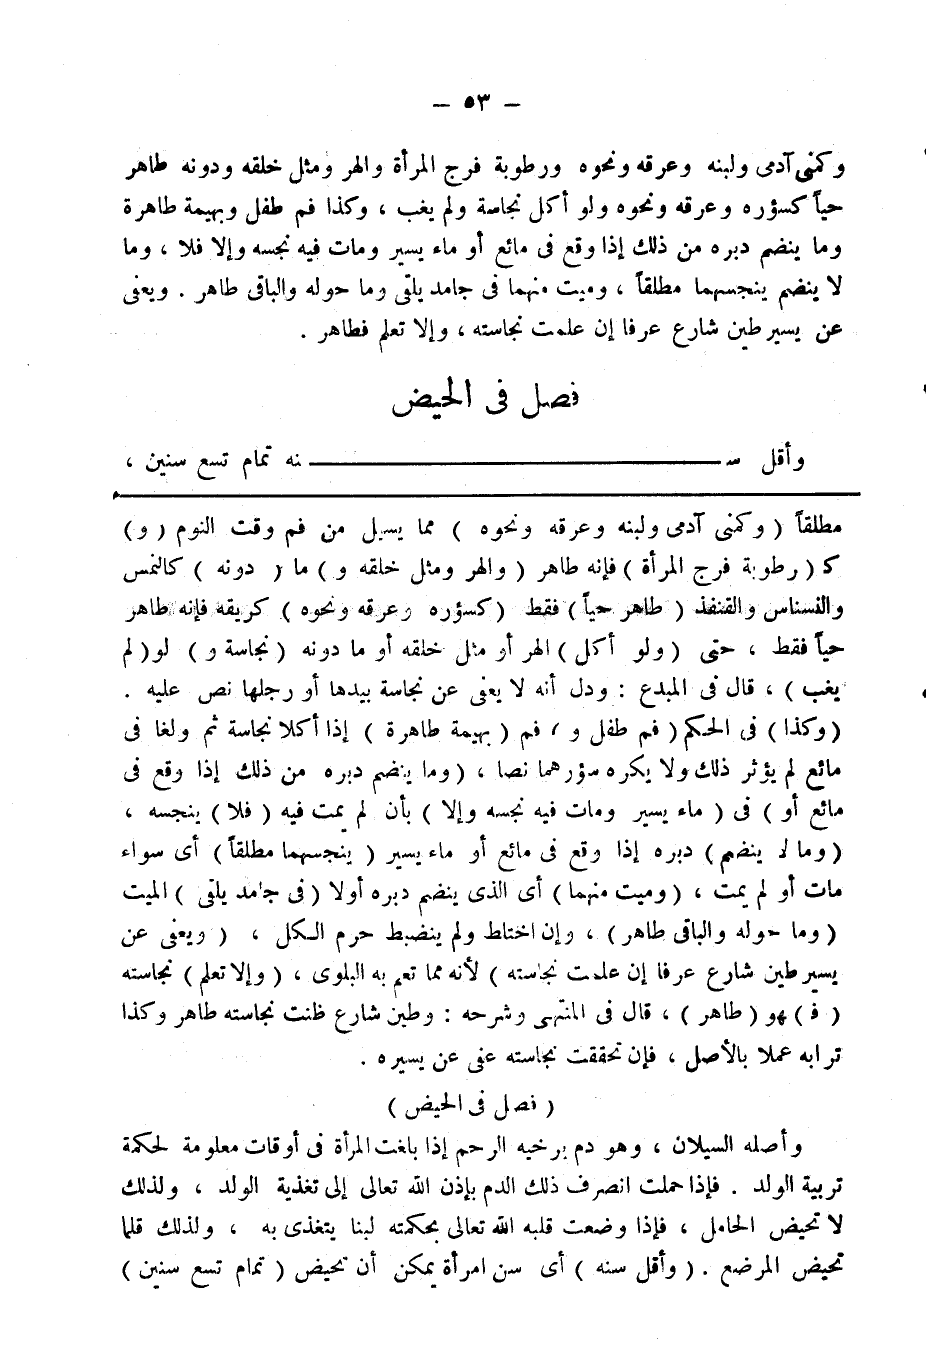 — ٥٣ —
وكمنى آدمى ولبنه وعرقه ونحوه ورطوبة فرج المرأة والهر ومثل خلقه ودونه طاهر
حياً كسؤره وعرقه ونحوه ولو أكل نجاسة ولم يغب ، وكذا فم طفل وبهيمة طاهرة
وما ينضم دبره من ذلك إذا وقع فى مائع أو ماء يسير ومات فيه نجسه وإلا فلا ، وما
لا ينضم ينجسهما مطلقاً ، وميت منهما فى جامد يلقى وما حوله والباقى طاهر . ويعفى
عن يسير طين شارع عرفا إن علمت نجاسته ، وإلا تعلم فطاهر .
فصل فى الحيض
وأقل ســـــــــــــــنه تمام تسع سنين ،
مطلقاً ( وكمنى آدمى ولبنه وعرقه ونحوه ) مما يسيل من فم وقت النوم ( و )
كـ ( رطوبة فرج المرأة ) فإنه طاهر ( والهر ومثل خلقه و ) ما ( دونه ) كالنمس
والنسناس والقنفذ ( طاهر حياً ) فقط ( كسؤره وعرقه ونحوه ) كريقه فإنه طاهر
حياً فقط ، حتى ( ولو أكل ) الهر أو مثل خلقه أو ما دونه ( نجاسة و ) لو ( لم
يغب ) ، قال فى المبدع : ودل أنه لا يعفى عن نجاسة بيدها أو رجلها نص عليه .
( وكذا ) فى الحكم ( فم طفل و ) فم ( بهيمة طاهرة ) إذا أكلا نجاسة ثم ولغا فى
مائع لم يؤثر ذلك ولا يكره سؤرهما نصا ، ( وما ينضم دبره من ذلك إذا وقع فى
مائع أو ) فى ( ماء يسير ومات فيه نجسه وإلا ) بأن لم يمت فيه ( فلا ) ينجسه ،
( وما لا ينضم ) دبره إذا وقع فى مائع أو ماء يسير ( ينجسهما مطلقاً ) أى سواء
مات أو لم يمت ، ( وميت منهما ) أى الذى ينضم دبره أولا ( فى جامد يلقى ) الميت
( وما حوله والباقى طاهر ) ، وإن اختاط ولم ينضبط حرم الكل ، ( ويعفى عن
يسير طين شارع عرفا إن علمت نجاسته ) لأنه مما تعم به البلوى ، ( وإلا تعلم ) نجاسته
( فـ ) هو ( طاهر ) ، قال فى المنتهى وشرحه : وطين شارع ظنت نجاسته طاهر وكذا
ترابه عملا بالأصل ، فإن تحققت نجاسته عفى عن يسيره .
( فصل فى الحيض )
وأصله السيلان ، وهو دم يرخيه الرحم إذا بلغت المرأة فى أوقات معلومة لحكمة
تربية الولد . فإذا حملت انصرف ذلك الدم بإذن الله تعالى إلى تغذية الولد ، ولذلك
لا تحيض الحامل ، فإذا وضعت قلبه الله تعالى بحكمته لبنا يتغذى به ، ولذلك قلما
تحيض المرضع . ( وأقل سنه ) أى سن امرأة يمكن أن تحيض ( تمام تسع سنين )